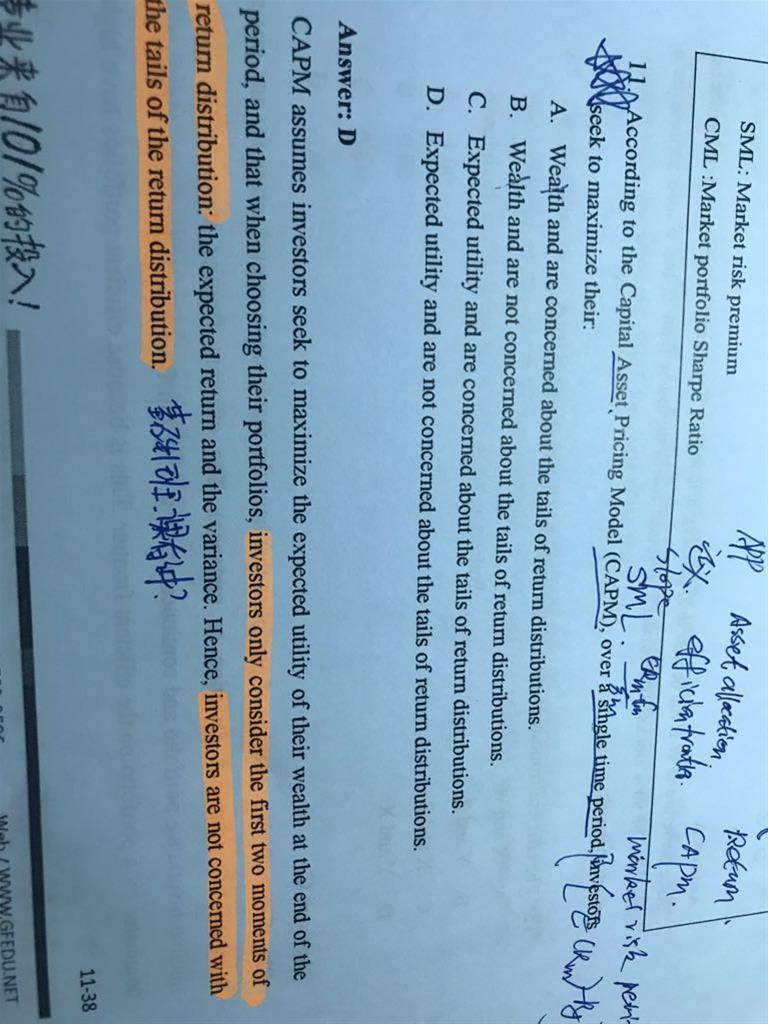 SML: Market risk premium
CML :Market portfolio Sharpe Ratio
APP Asset allocation Return
efficient frontier. CAPM.
slope
SML.
market risk
11 According to the Capital Asset Pricing Model (CAPM), over a single time period, investors
seek to maximize their:
A. Wealth and are concerned about the tails of return distributions.
B. Wealth and are not concerned about the tails of return distributions.
C. Expected utility and are concerned about the tails of return distributions.
D. Expected utility and are not concerned about the tails of return distributions.
Answer: D
CAPM assumes investors seek to maximize the expected utility of their wealth at the end of the
period, and that when choosing their portfolios, investors only consider the first two moments of
return distribution: the expected return and the variance. Hence, investors are not concerned with
the tails of the return distribution.
11-38
业来自101%的投入!
Web / WWW.GFEDU.NET